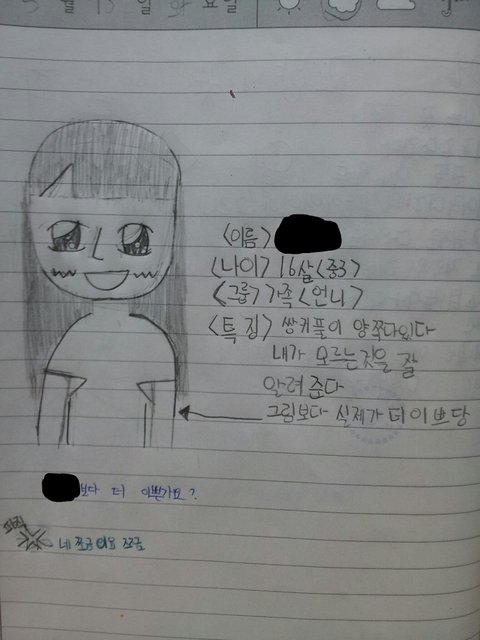 월 15일 화요일
<이름>
<나이> 16살<중3>
<그룹> 가족<언니>
<특징> 쌍커플이 양쪽다있다
내가 모르는것을 잘
알려준다
그림보다 실제가 더 이쁘당
보다 더 이쁜가요?
네 조금이요 조금